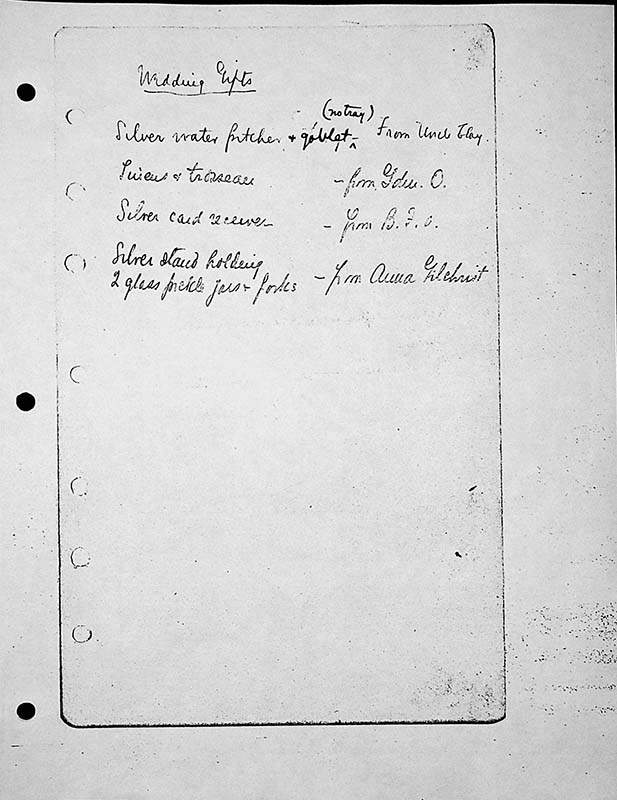 Wedding Gifts
(no tray)
Silver water pitcher & goblet ‸ From Uncle Clay.
Linens & trosseau – from Gdm. O.
Silver card receiver – from B. F. O.
Silver stand holding
2 glass pickle jars & forks – from Anna Gilchrist